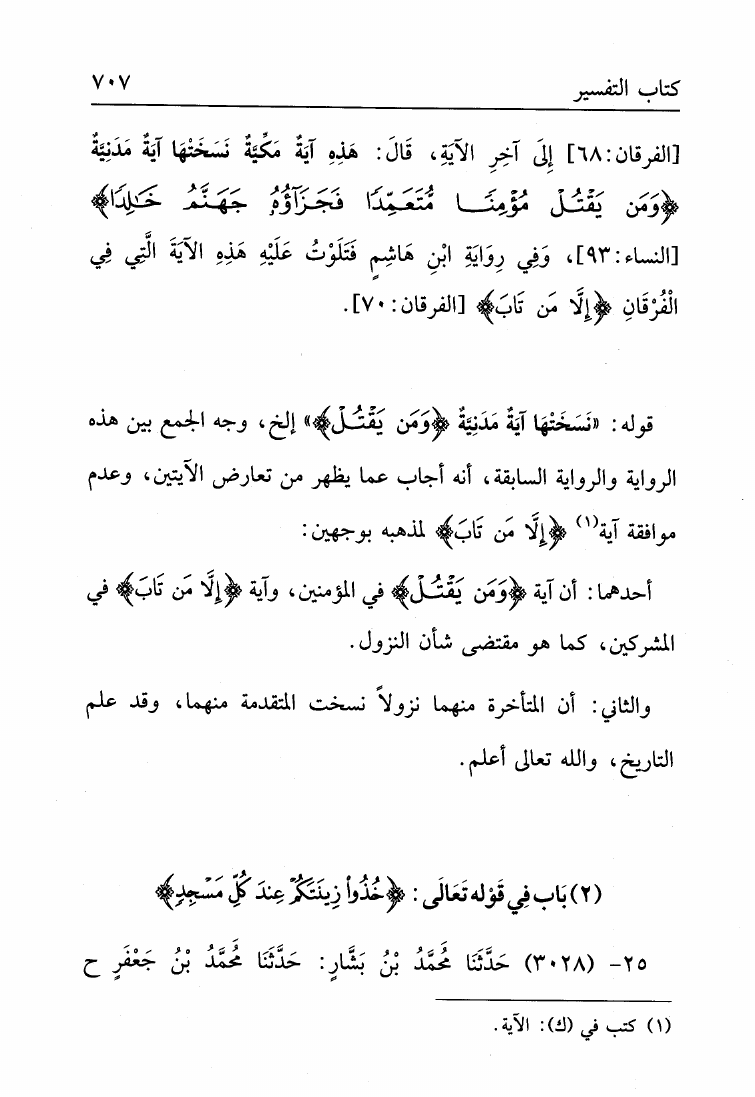 كتاب التفسير ٧٠٧
[الفرقان:٦٨] إِلَى آخِرِ الآيَةِ، قَالَ: هَذِهِ آيَةٌ مَكِّيَّةٌ نَسَخَتْهَا آيَةٌ مَدَنِيَّةٌ
﴿وَمَن يَقْتُلْ مُؤْمِنًا مُّتَعَمِّدًا فَجَزَآؤُهُ جَهَنَّمُ خَالِدًا﴾
[النساء:٩٣]، وَفِي رِوَايَةِ ابْنِ هَاشِمٍ فَتَلَوْتُ عَلَيْهِ هَذِهِ الآيَةَ الَّتِي فِي
الْفُرْقَانِ ﴿إِلَّا مَن تَابَ﴾ [الفرقان:٧٠].
قوله: «نَسَخَتْهَا آيَةٌ مَدَنِيَّةٌ ﴿وَمَن يَقْتُلْ﴾» إلخ، وجه الجمع بين هذه
الرواية والرواية السابقة، أنه أجاب عما يظهر من تعارض الآيتين، وعدم
موافقة آية(١) ﴿إِلَّا مَن تَابَ﴾ لمذهبه بوجهين:
أحدهما: أن آية ﴿وَمَن يَقْتُلْ﴾ في المؤمنين، وآية ﴿إِلَّا مَن تَابَ﴾ في
المشركين، كما هو مقتضى شأن النزول.
والثاني: أن المتأخرة منهما نزولاً نسخت المتقدمة منهما، وقد علم
التاريخ، والله تعالى أعلم.
(٢) بَاب فِي قَوْلِه تَعَالَى: ﴿خُذُواْ زِينَتَكُمْ عِندَ كُلِّ مَسْجِدٍ﴾
٢٥- (٣٠٢٨) حَدَّثَنَا مُحَمَّدُ بْنُ بَشَّارٍ: حَدَّثَنَا مُحَمَّدُ بْنُ جَعْفَرٍ ح
(١) كتب في (ك): الآية.